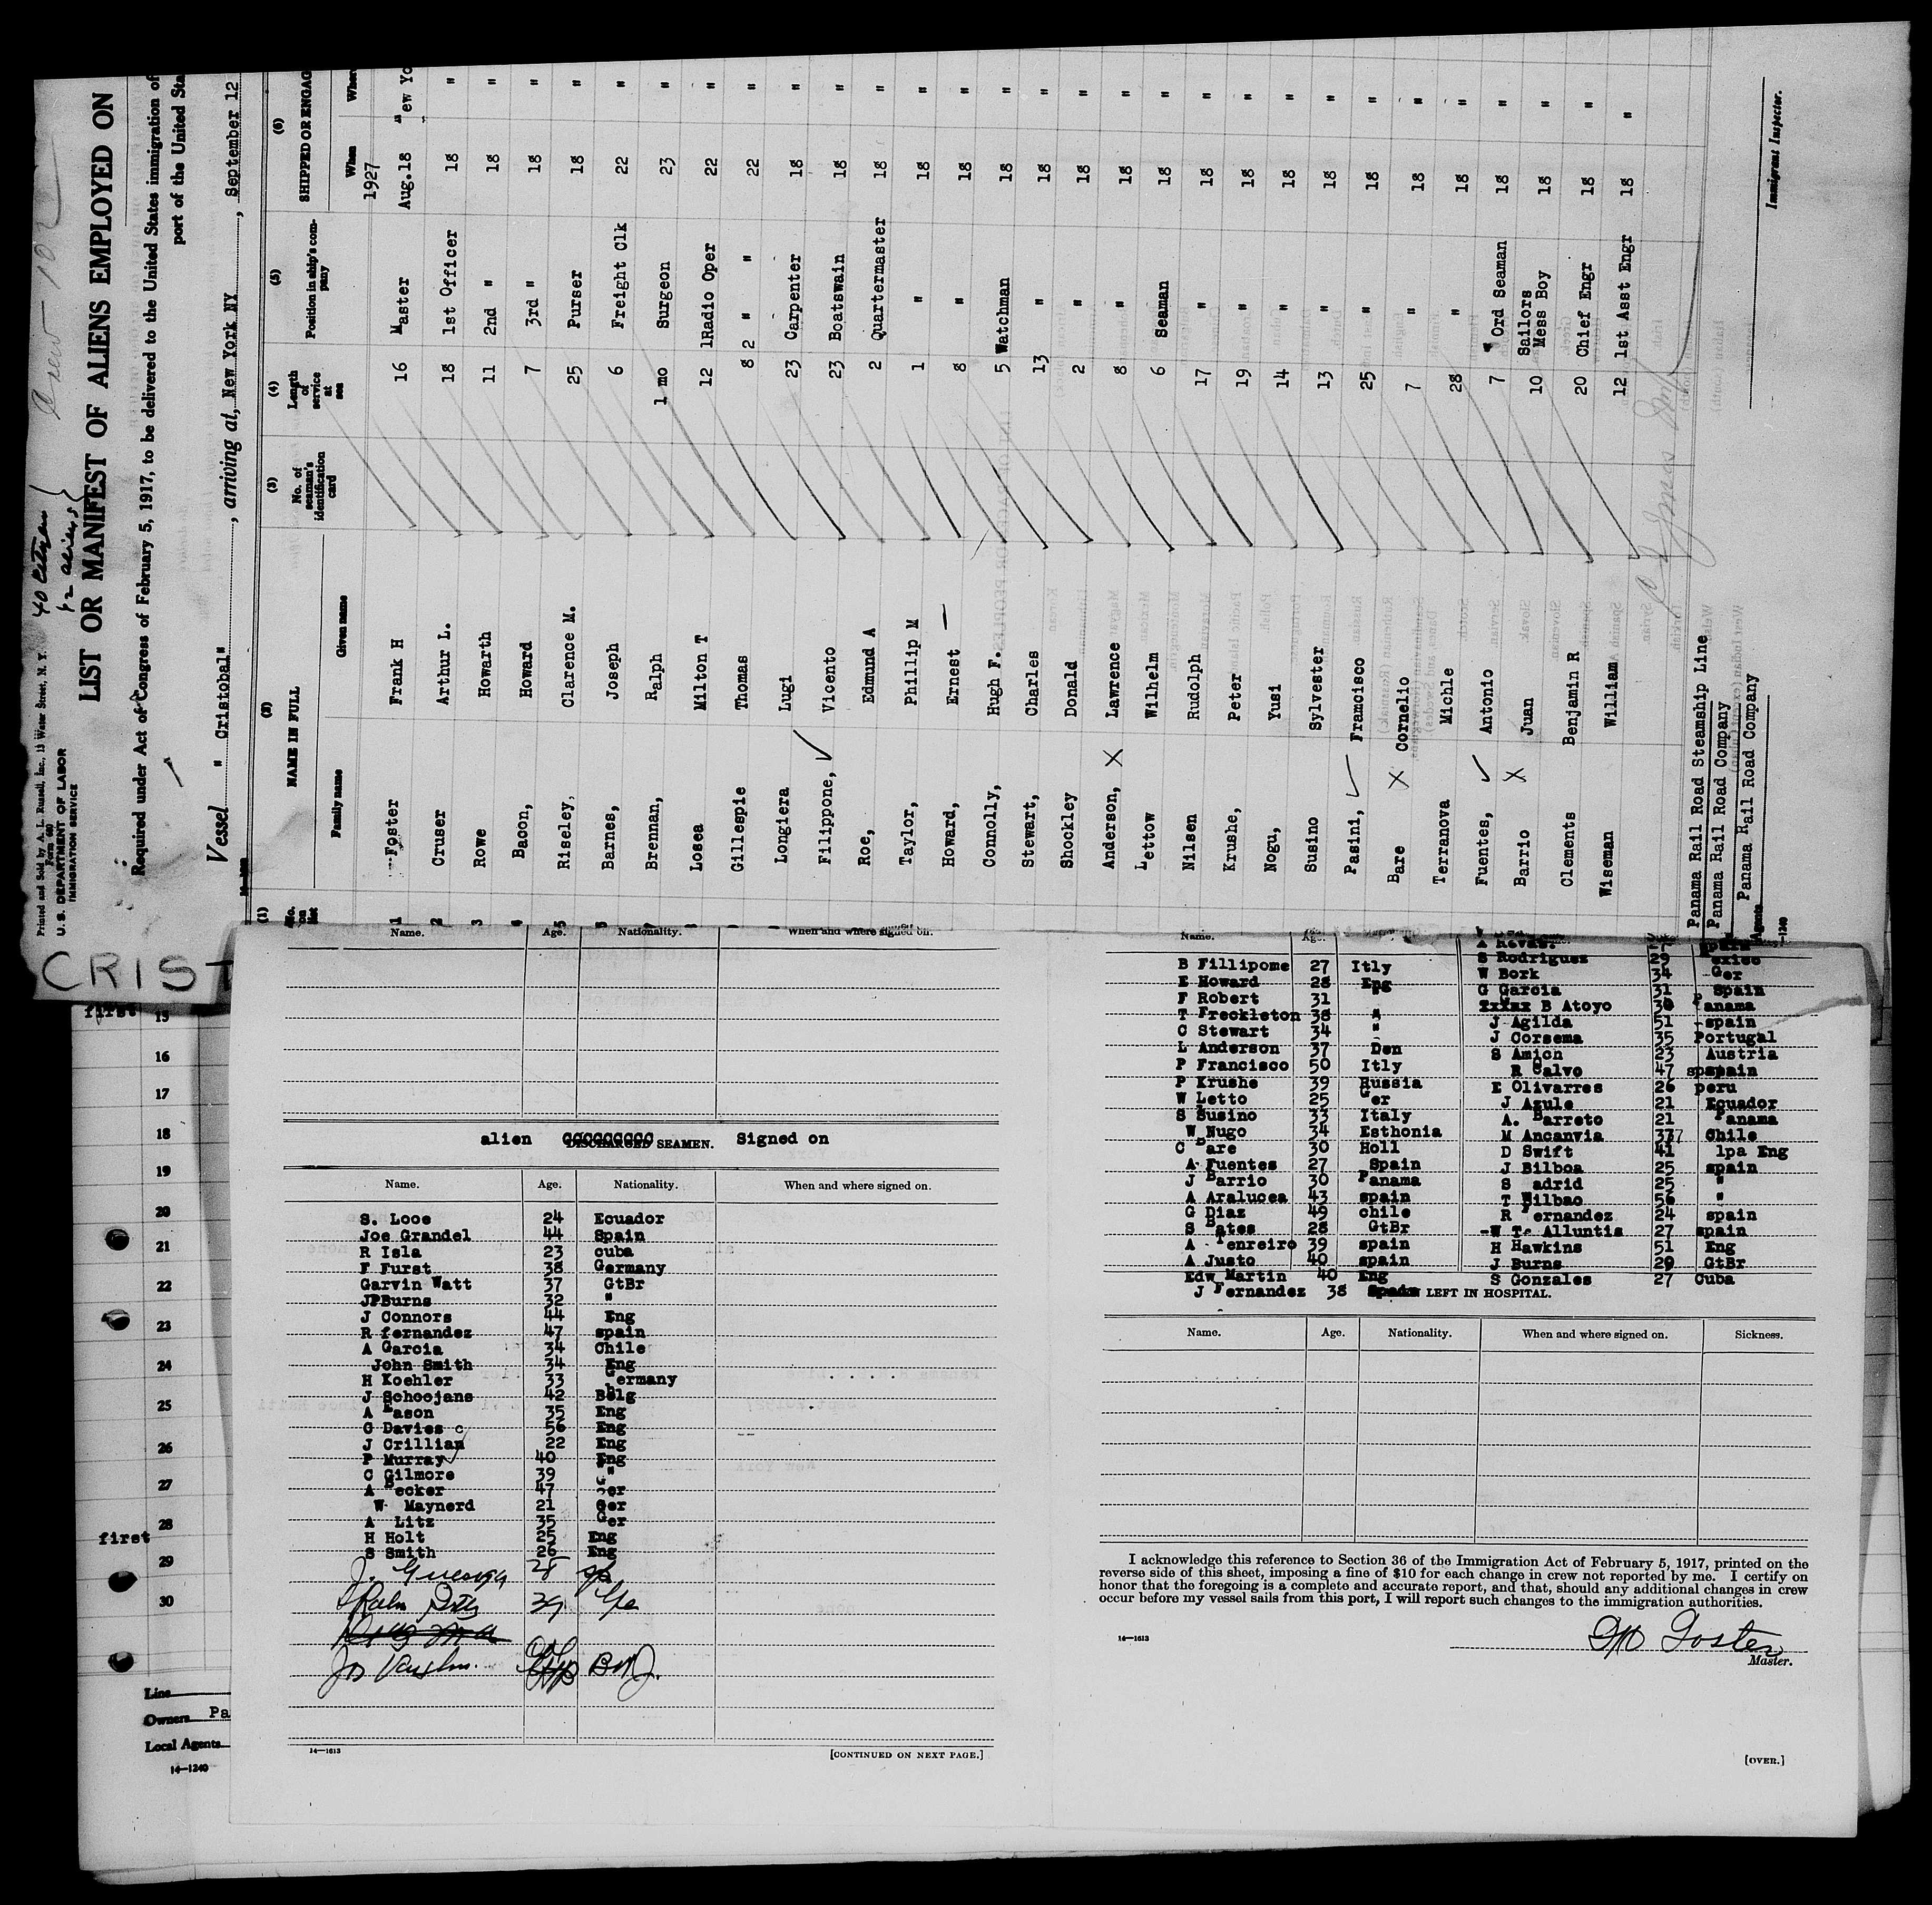 Printed and Sold by A. L. Russell, Inc., 13 Water Street, N. Y.
Form 680
U. S. DEPARTMENT OF LABOR
IMMIGRATION SERVICE
40 citizen
LIST OR MANIFEST OF ALIENS EMPLOYED ON
Required under Act of Congress of February 5, 1917, to be delivered to the United States immigration of
port of the United Sta
Vessel " Cristobal" , arriving at, New York NY , September 12
(1) (2) (3) (4) (5) (6)
No. on list NAME IN FULL No. of seaman's identification card Length of service at sea Position in ship's company SHIPPED OR ENGAG
Family name Given name When Wher
1927
1 Foster Frank H 16 Master Aug.18 New Yo
2 Cruser Arthur L. 18 1st Officer 18 "
3 Rowe Howarth 11 2nd " 18 "
4 Bacon, Howard 7 3rd " 18 "
5 Riseley, Clarence M. 25 Purser 18 "
Barnes, Joseph 6 Freight Clk 22 "
Brennan, Ralph 1 mo Surgeon 23 "
Losea Milton T 12 1Radio Oper 22 "
Gillespie Thomas 8 2 " " 22 "
Longiera Lugi 23 Carpenter 18 "
Filippone, Vicento 23 Boatswain 18 "
Roe, Edmund A 2 Quartermaster 18 "
Taylor, Phillip M 1 " 18 "
Howard, Ernest 8 " 18 "
Connolly, Hugh F. 5 Watchman 18 "
Stewart, Charles 13 " 18 "
Shockley Donald 2 " 18 "
Anderson, X Lawrence 8 " 18 "
Lettow Wilhelm 6 Seaman 18 "
Nilsen Rudolph 17 " 18 "
Krushe, Peter 19 " 18 "
Nogu, Yusi 14 " 18 "
Susino Sylvester 13 " 18 "
Pasini, Francisco 25 " 18 "
Bare X Cornelio 7 " 18 "
Terranova Michle 28 " 18 "
Fuentes, Antonio 7 Ord Seaman 18 "
Barrio X Juan 10 Sailors Mess Boy 18 "
Clements Benjamin R 20 Chief Engr 18 "
Wiseman William 12 1st Asst Engr 18 "
Panama Rail Road Steamship Line
Panama Rail Road Company
Agents Panama Rail Road Company
Immigrant Inspector.
CRIST
first 15
16
17
18
19
20
21
22
23
24
25
26
27
first 28
29
30
Line
Owners Pa
Local Agents
14—1240
Name. Age. Nationality. When and where signed on.
alien DISCHARGED SEAMEN. Signed on
Name. Age. Nationality. When and where signed on.
S. Looe 24 Ecuador
Joe Grandel 44 Spain
R Isla 23 cuba
F Furst 38 Germany
Garvin Watt 37 GtBr
JPBurns 32 "
J Connors 44 Eng
R fernandez 47 spain
A Garcia 34 Chile
John Smith 34 Eng
H Koehler 33 Germany
J Schoojans 42 Belg
A Eason 35 Eng
G Davies 56 Eng
J Crillian 22 Eng
P Murray 40 Eng
C Gilmore 39 "
A Becker 47 Ger
W Maynerd 21 Ger
A Litz 35 Ger
H Holt 25 Eng
S Smith 26 Eng
14—1613 [CONTINUED ON NEXT PAGE.]
Name. Age.
B Fillipome 27 Itly
E Howard 28 Eng
F Robert 31 "
T Freckleton 38 "
C Stewart 34 "
L Anderson 37 Den
P Francisco 50 Itly
P Krushe 39 Russia
W Letto 25 Ger
S Susino 33 Italy
W Nugo 34 Esthonia
C Bare 30 Holl
A Fuentes 27 Spain
J Barrio 30 Panama
A Aralucea 43 spain
G Diaz 49 chile
S Bates 28 GtBr
A Tenreiro 39 spain
A Justo 40 spain
Edw Martin 40 Eng
J Fernandez 38 Spain
S Rodriguez 29 Mexico
W Bork 34 Ger
G Garcia 31 Spain
B Atoyo 30 Panama
J Agilda 51 spain
J Corsema 35 Portugal
S Amich 23 Austria
R Calvo 47 spain
E Olivarres 26 peru
J Azule 21 Ecuador
A. Barreto 21 Panama
M Ancanvia 37 Chile
D Swift 41 Eng
J Bilboa 25 spain
S adrid 25 "
T Bilbao 56 "
R Fernandez 24 spain
W T Alluntis 27 spain
H Hawkins 51 Eng
J Burns 29 GtBr
S Gonzales 27 Cuba
LEFT IN HOSPITAL.
Name. Age. Nationality. When and where signed on. Sickness.
I acknowledge this reference to Section 36 of the Immigration Act of February 5, 1917, printed on the
reverse side of this sheet, imposing a fine of $10 for each change in crew not reported by me. I certify on
honor that the foregoing is a complete and accurate report, and that, should any additional changes in crew
occur before my vessel sails from this port, I will report such changes to the immigration authorities.
14—1613
Foster
Master.
[OVER.]